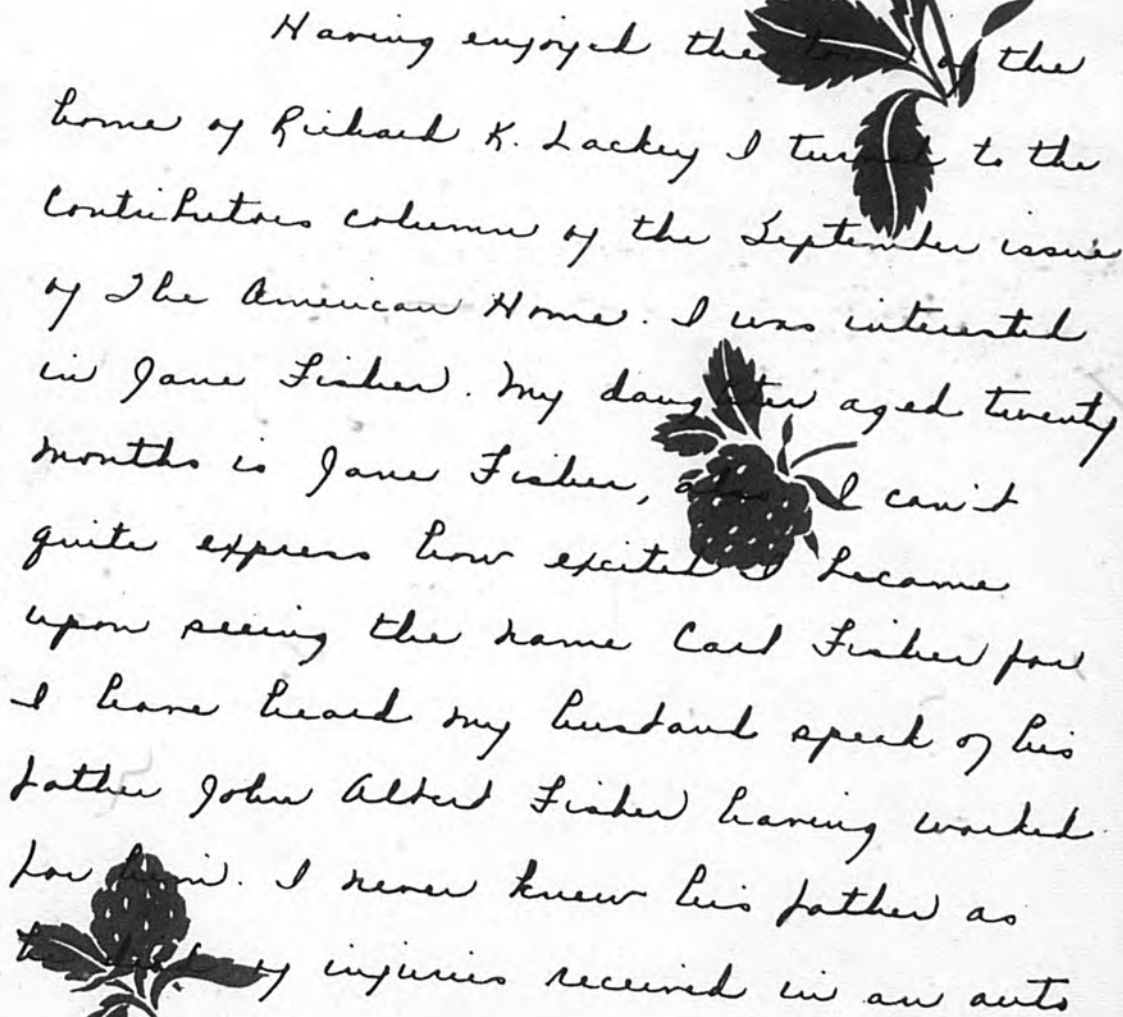 Having enjoyed the tour of the
home of Richard K. Lackey I turned to the
Contributors column of the September issue
of The American Home. I was interested
in Jane Fisher. My daughter aged twenty
months is Jane Fisher, also. I can't
quite express how excited I became
upon seeing the name Carl Fisher for
I have heard my husband speak of his
father John Albert Fisher having worked
for him. I never knew his father as
he died of injuries received in an auto